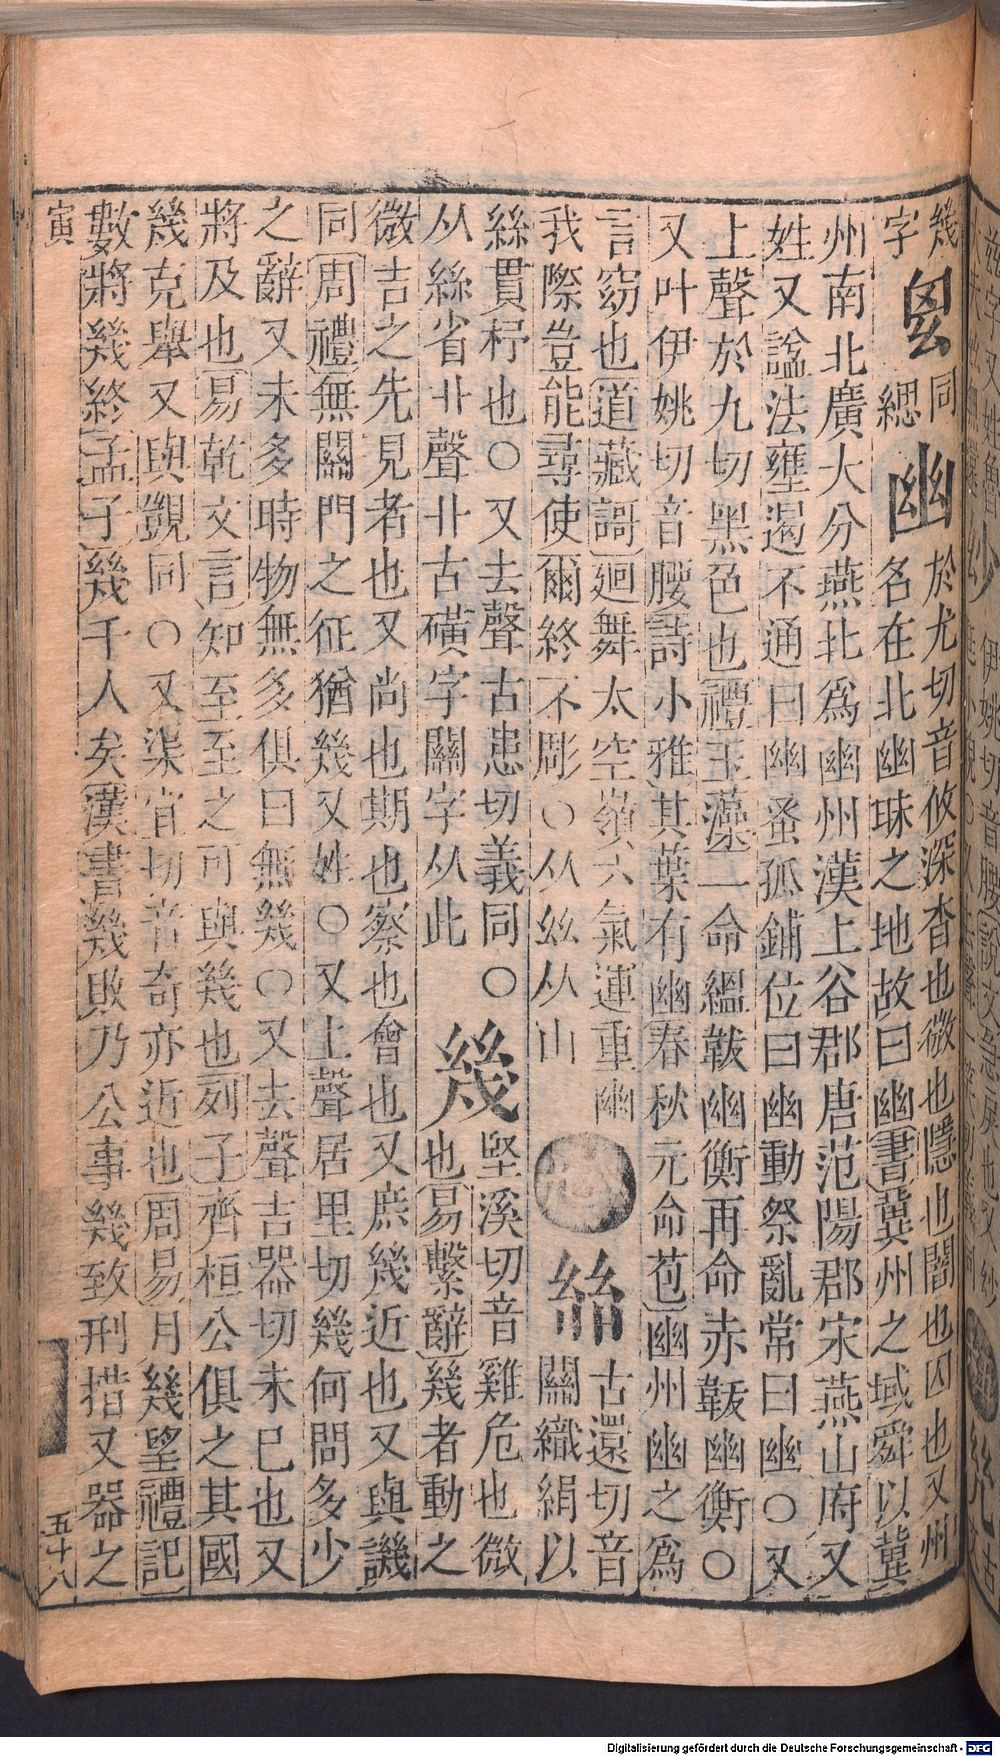 幾
字
㘝
同
緦
幽
於尤切音攸深杳也微也隱也闇也囚也又州
名在北幽昧之地故曰幽書冀州之域舜以冀
州南北廣大分燕北爲幽州漢上谷郡唐范陽郡宋燕山府又
姓又諡法壅遏不通曰幽蚤孤鋪位曰幽動祭亂常曰幽○又
上聲於九切黑色也禮玉藻一命縕韍幽衡再命赤韍幽衡○
又叶伊姚切音腰詩小雅其葉有幽春秋元命苞幽州幽之爲
言窈也道藏謌廻舞太空嶺六氣運重幽
我際豈能尋使爾終不彫○从𢆶从山
𢇁
古還切音
關織絹以
絲貫杼也○又去聲古患切義同○
从絲省丱聲丱古磺字關字从此
幾
堅溪切音雞危也微
也易繫辭幾者動之
微吉之先見者也又尚也期也察也會也又庶幾近也又與譏
同周禮無關門之征猶幾又姓○又上聲居里切幾何問多少
之辭又未多時物無多俱曰無幾○又去聲吉器切未已也又
將及也易乾文言知至至之可與幾也列子齊桓公俱之其國
幾克舉又與覬同○又渠宜切音奇亦近也周易月幾望禮記
數將幾終孟子幾千人矣漢書幾敗乃公事幾致刑措又器之
寅
五十八
Digitalisierung gefördert durch die Deutsche Forschungsgemeinschaft - DFG